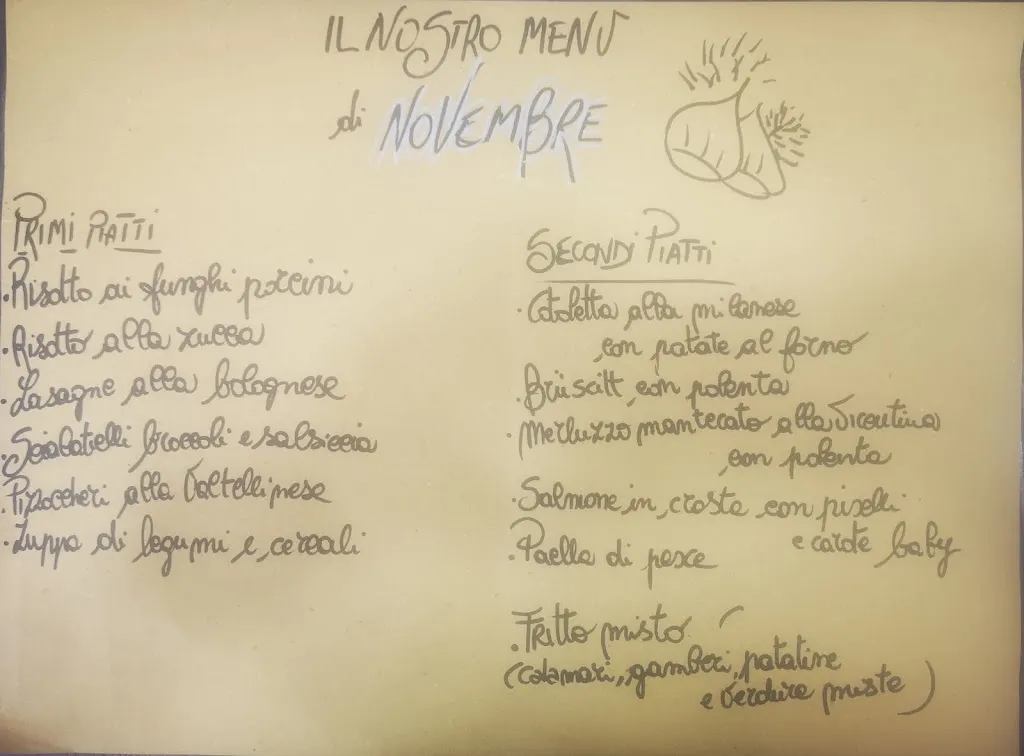 IL NOSTRO MENÙ
di NOVEMBRE
PRIMI PIATTI
·Risotto ai funghi porcini
·Risotto alla zucca
·Lasagne alla bolognese
·Scialatielli broccoli e salsiccia
·Pizzoccheri alla Valtellinese
·Zuppa di legumi e cereali
SECONDI PIATTI
·Cotoletta alla milanese
con patate al forno
·Brüscitt con polenta
·Merluzzo mantecato alla Vicentina
con polenta
·Salmone in crosta con piselli
e carote baby
·Paella di pesce
·Fritto misto
(calamari, gamberi, patatine
e verdure miste)